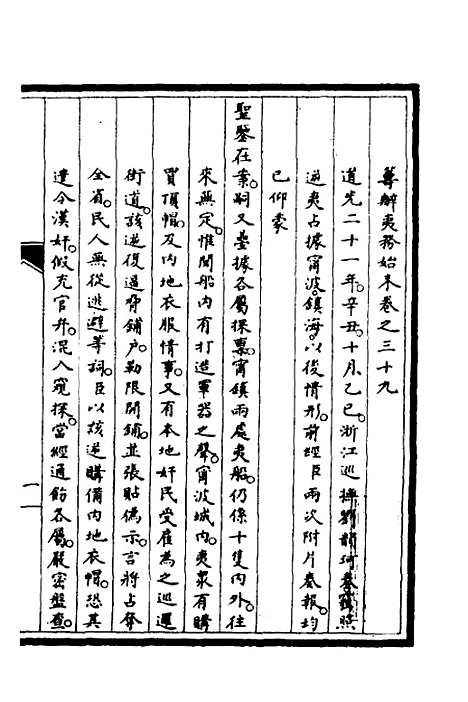 籌辦夷務始末卷之三十九
道光二十一年辛丑十月乙巳浙江巡撫劉韻珂奏竊照
逆夷占據甯波鎮海以後情形前經臣兩次附片奏報均
已仰蒙
聖鑒在案嗣又疊據各屬探稟甯鎮兩處夷船仍係十隻內外往
來無定惟聞船內有打造軍器之聲甯波城內夷眾有購
買頂帽及內地衣服情事又有本地奸民受雇為之巡邏
街道該逆復逼脅鋪戶勒限開鋪並張貼偽示言將占奪
全省民人無從逃避等詞臣以該逆購備內地衣帽恐其
遣令漢奸假充官弁混入窺探當經通飭各屬嚴密盤查
一